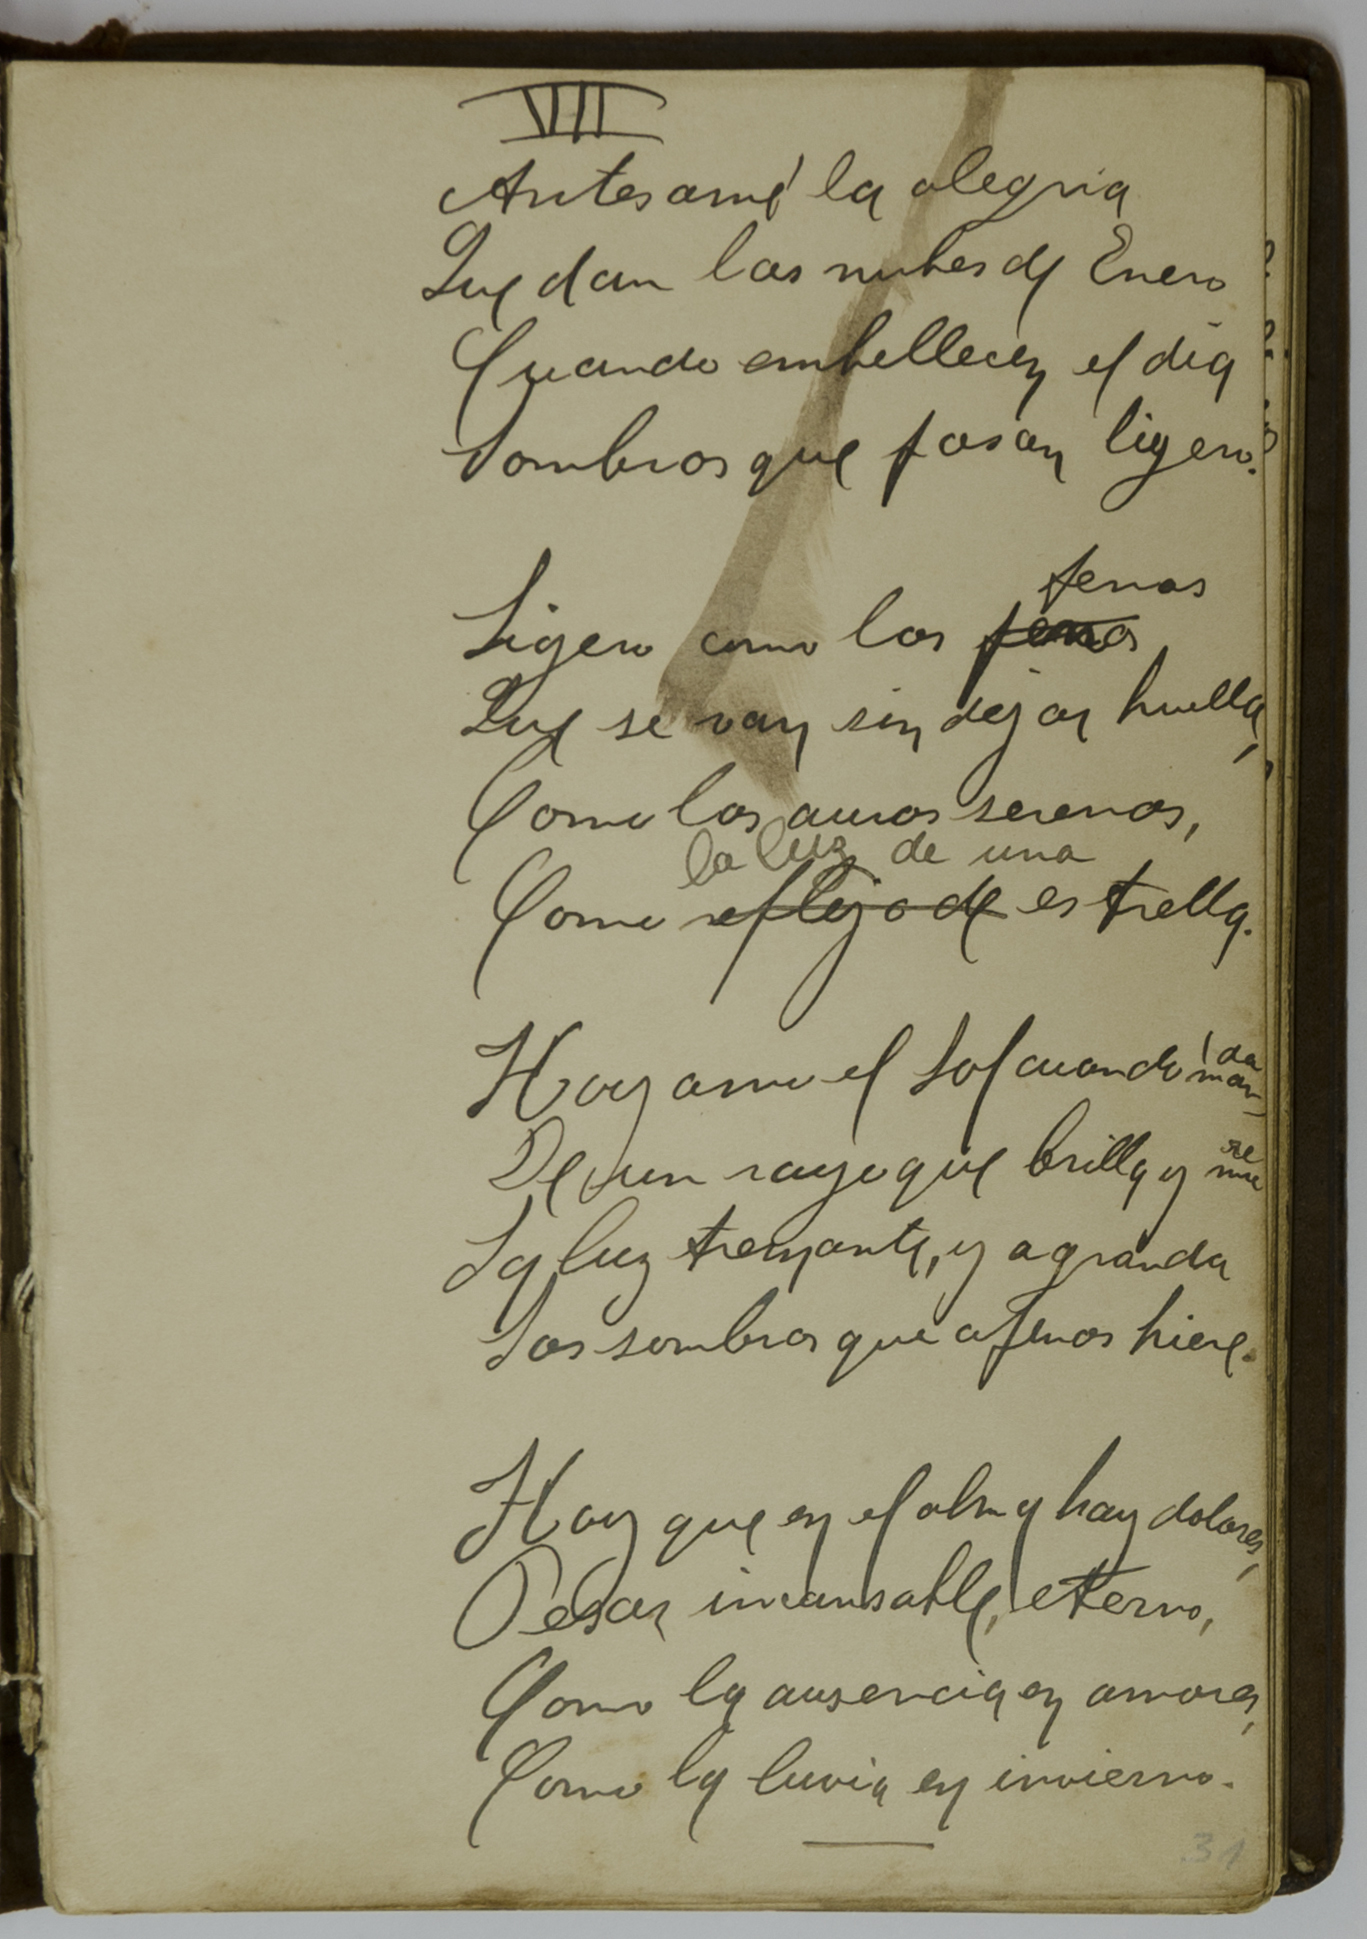 VII
Antes amé la alegria
Que dan las nubes de Enero
Cuando embellecen el dia
Sombras que pasan ligero.
penas
Ligero como las penas
Que se van sin dejar huella,
Como las auras serenas,
la luz de una
Como reflejo de estrella.
da
Hoy amo el Sol cuando man-
re
De un rayo que brilla y mue
La luz tremante, y agranda
Las sombras que apenas hiere.
Hoy que en el alma hay dolores,
Pesar incansable, eterno,
Como la ausencia en amores,
Como la luvia en invierno.
31